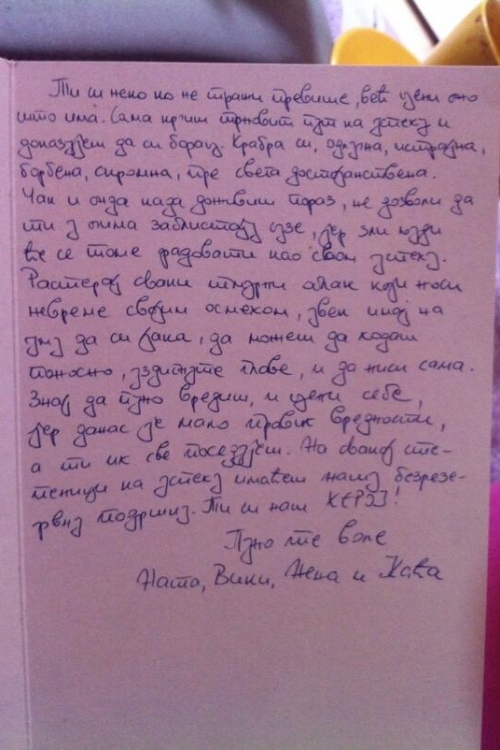 Ти си неко ко не тражи превише, већ цени оно
што има. Сама кршиш трновит пут ка успеху и
доказујеш да си борац. Храбра си, одлучна, истрајна,
борбена, скромна, пре свега достојанствена.
Чак и онда када доживиш пораз, не дозволи да
ти у очима заблистају сузе, јер зли људи
ће се томе радовати као свом успеху.
Растерај сваки тмурни облак који носи
невреме својим осмехом, увек имај на
уму да си јака, да можеш да ходаш
поносно, уздигнуте главе, и да ниси сама.
Знај да пуно вредиш, и цени себе,
јер данас је мало правих вредности,
а ти их све поседујеш. На свакој сте-
пеници ка успеху имаћеш нашу безрезе-
рвну подршку. Ти си наш ХЕРОЈ!
Пуно те воле
Ната, Вики, Нена и Каћа